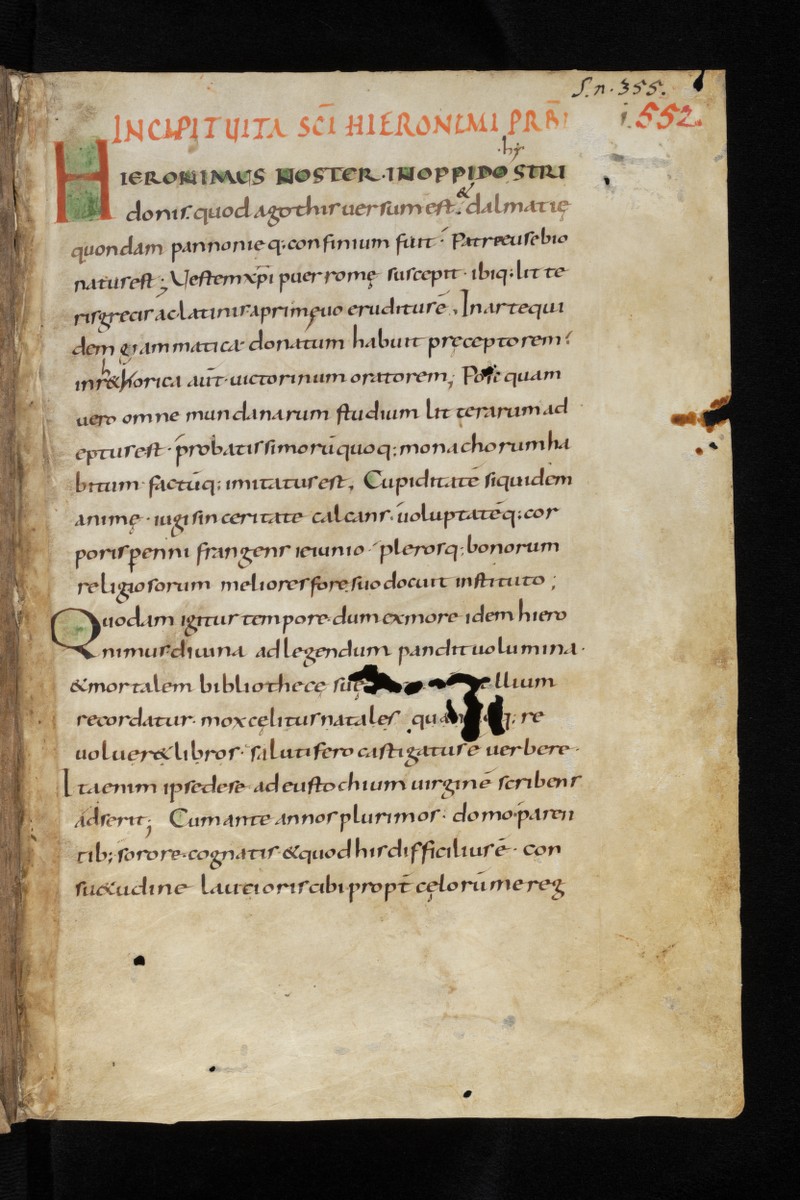 S. n. 355.
i. 552.
INCIPIT UITA SCI HIERONIMI PRBI
HIERONIMUS NOSTER. IN OPPIDO STRI
donis. quod agothis uersum est. & dalmatię
quondam pannonieq; confinium fuit. Patre eusebio
natus est; Uestem xp̄i puer romę suscepit. ibiq; litte
ris grecis ac latinis a primęuo eruditus ē. In arte qui
dem grammatica donatum habuit pręceptorem.
in r&horica aūt. uictorinum oratorem; Postquam
uero omne mundanarum studium litterarum ad
eptus est. probatissimorū quoq; monachorum ha
bitum factūq; imitatus est. Cupiditatē siquidem
animę. iugi sinceritate calcans. uoluptatēq; cor
poris penni frangens ieiunio. plerosq; bonorum
religiosorum meliores fore suo docuit instituto;
Quodam igitur tempore. dum ex more idem hiero
nimus diuina ad legendum pandit uolumina.
& mortalem bibliothecę suę llium
recordatur. mox cęlitus natales q; re
uoluere & libros. salutifero castigatus ē uerbere.
Ita enim ipse de se ad eustochium uirginē scribens
adserit; Cum ante annos plurimos. domo. paren
tib; sorore. cognatis. & quod his difficilius ē. con
su&udine lautioris cibi. propt̄ cęlorū me reg